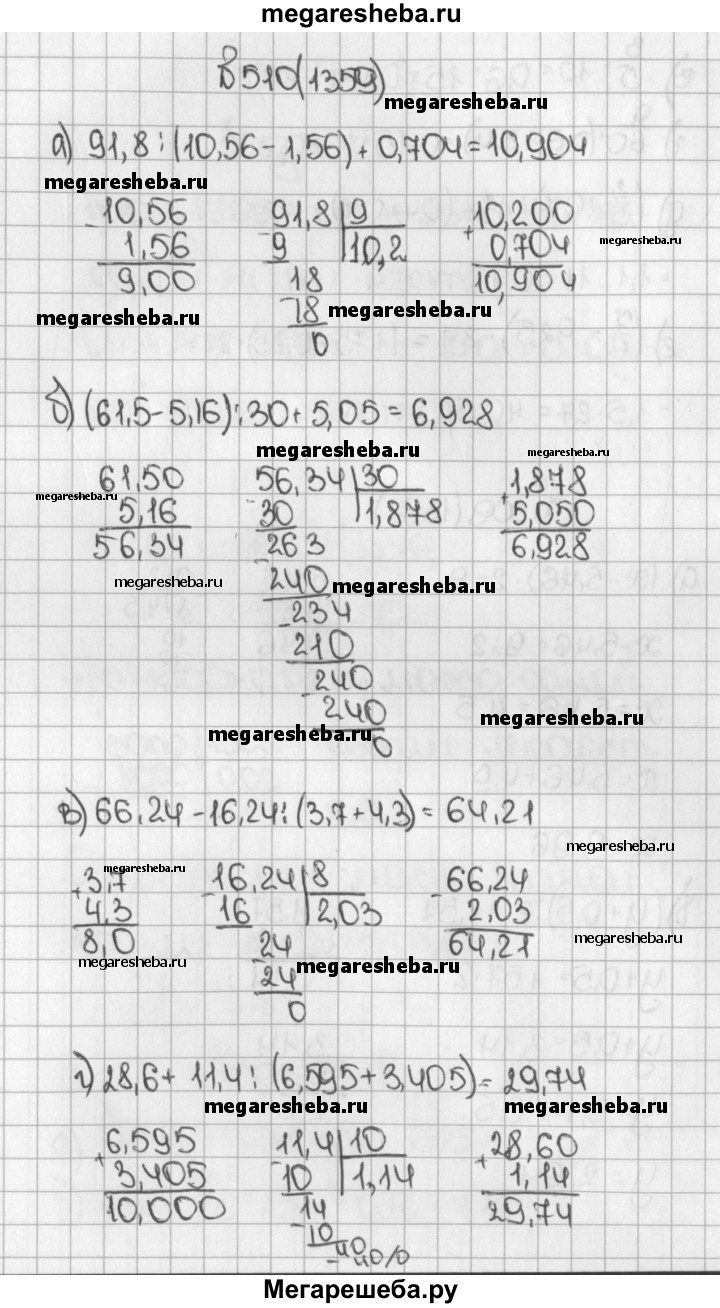 megaresheba.ru
В510(1359)
megaresheba.ru
а) 91,8 : (10,56 - 1,56) + 0,704 = 10,904
megaresheba.ru
- 10,56   91,8 | 9   10,200
1,56   - 9   | 10,2   + 0,704   megaresheba.ru
9,00   18   10,904
megaresheba.ru   - 18   megaresheba.ru
0
б) (61,5 - 5,16) : 30 + 5,05 = 6,928
megaresheba.ru   megaresheba.ru
61,50   56,34 | 30   1,878
megaresheba.ru   - 5,16   - 30   | 1,878   + 5,050
56,34   - 263   6,928
megaresheba.ru   240   megaresheba.ru
- 234
210
- 240
240   megaresheba.ru
megaresheba.ru   0
в) 66,24 - 16,24 : (3,7 + 4,3) = 64,21
megaresheba.ru
+ 3,7   megaresheba.ru   - 16,24 | 8   - 66,24
4,3   16   | 2,03   2,03
8,0   - 24   64,21   megaresheba.ru
megaresheba.ru   24   megaresheba.ru
0
г) 28,6 + 11,4 : (6,595 + 3,405) = 29,74
megaresheba.ru   megaresheba.ru
+ 6,595   - 11,4 | 10   + 28,60
3,405   10   | 1,14   1,14
10,000   - 14   29,74
10
- 40
40/0
Мегарешеба.ру